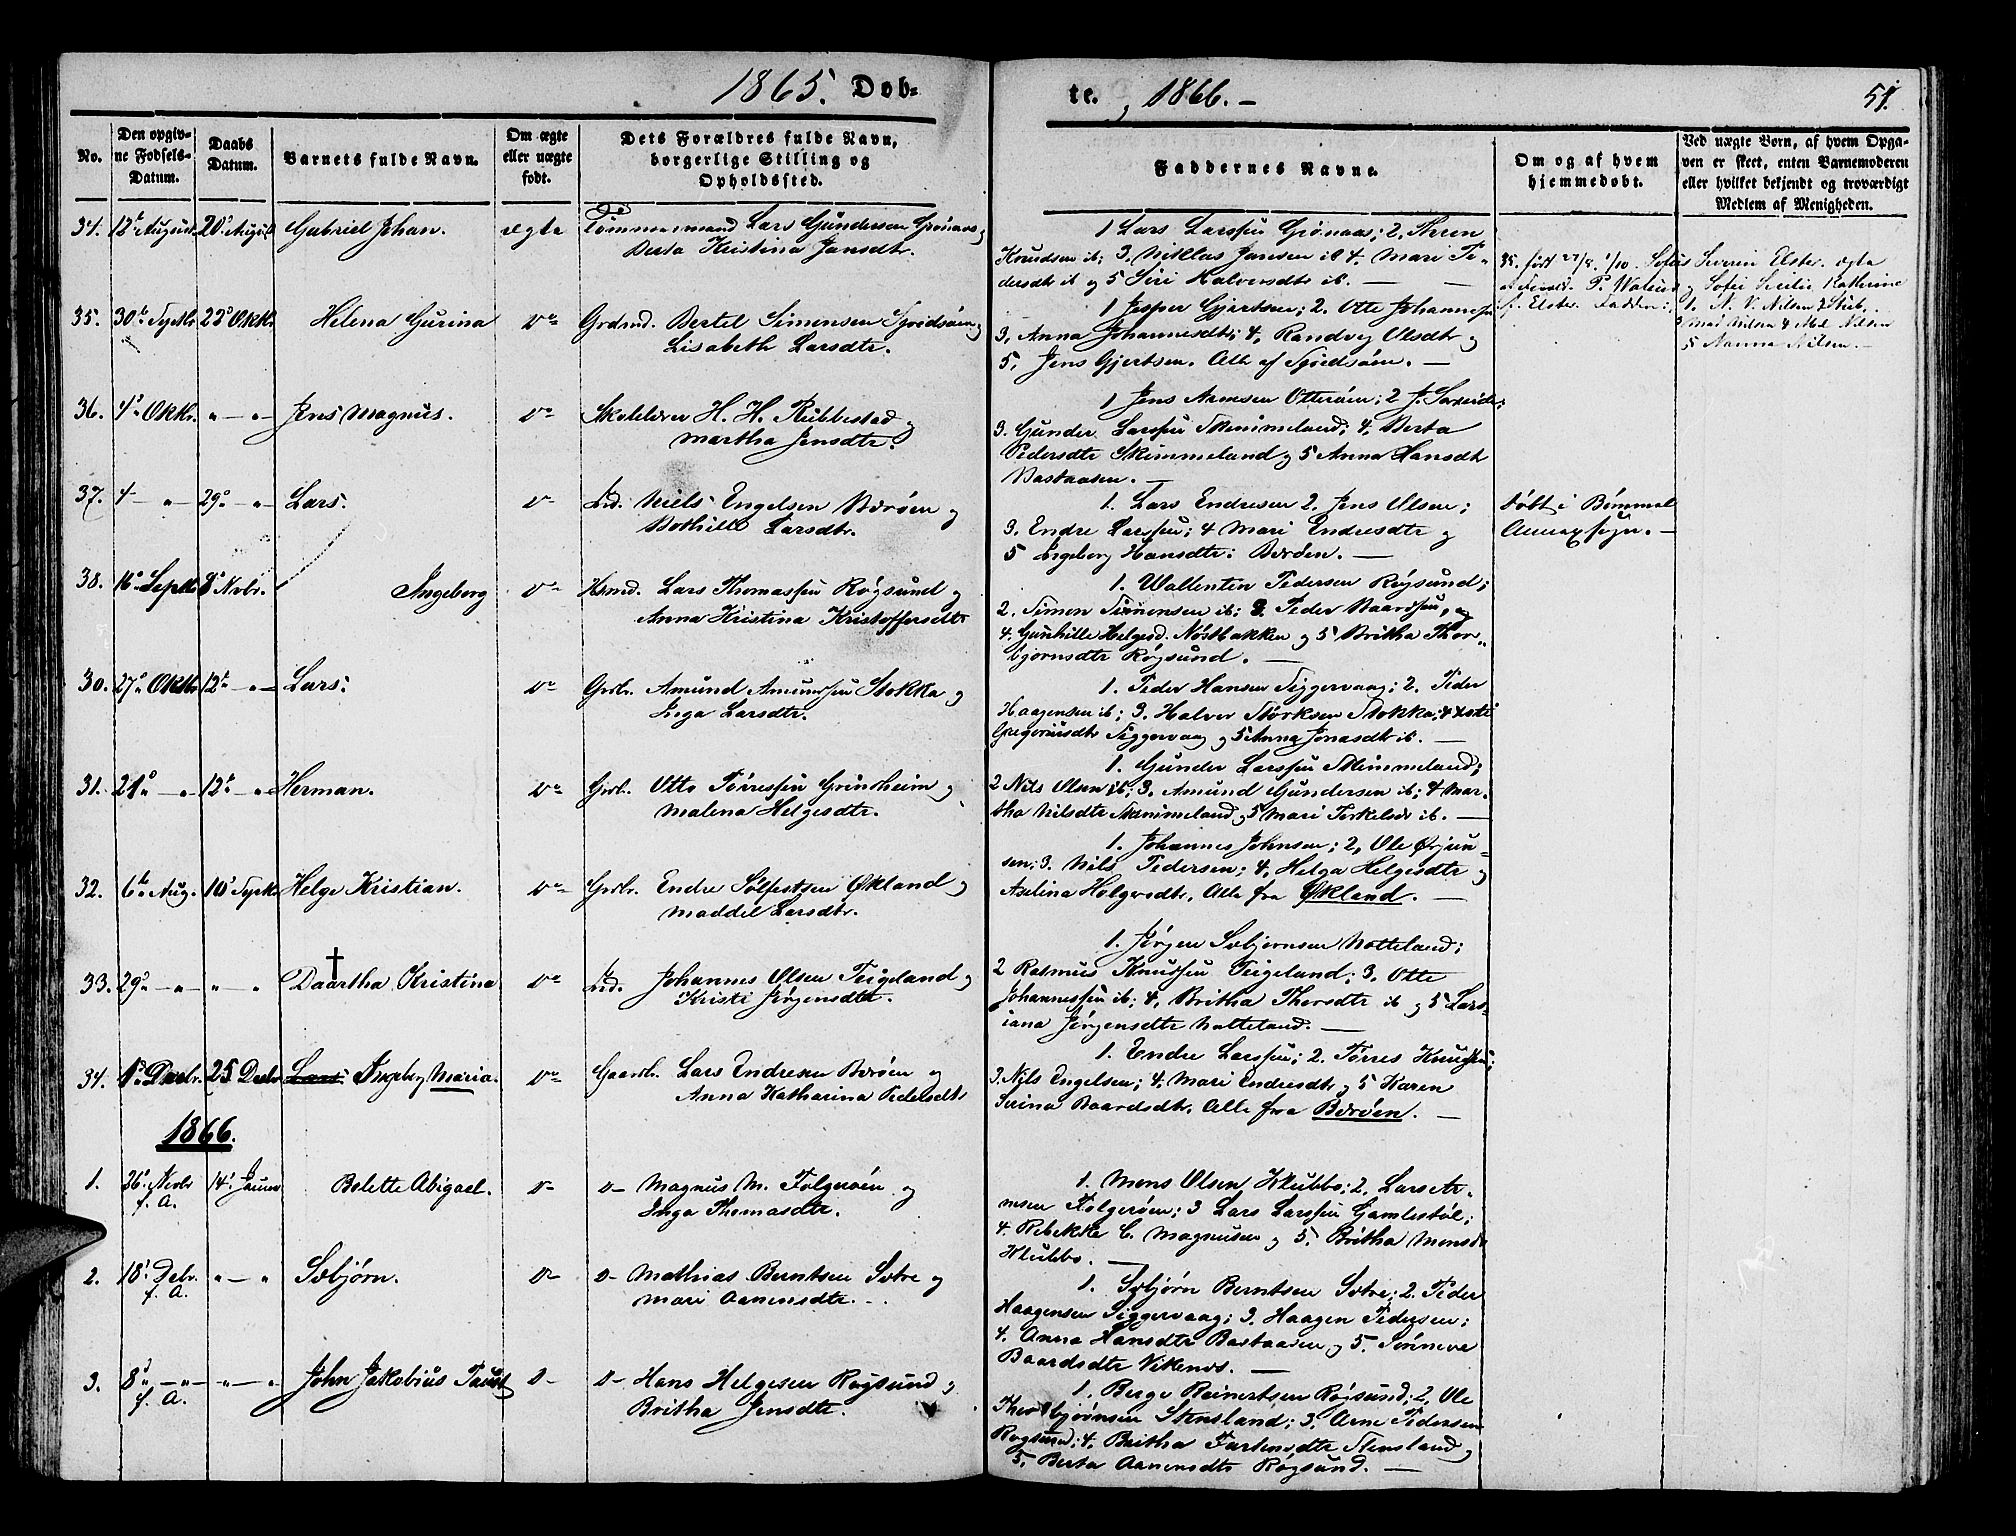 1865. Døb-
te, 1866. —
51.
No.
Den opgiv-
ne Fødsels-
Datum.
Daabs
Datum.
Barnets fulde Navn.
Om ægte
eller uægte
født.
Dets Forældres fulde Navn,
borgerlige Stilling og
Opholdssted.
Faddernes Navne.
Om og af hvem
hjemmedøbt.
Ved uægte Børn, af hvem Opga-
ven er skeet, enten Barnemoderen
eller hvilket bekjendt og troværdigt
Medlem af Menigheden.
34. 12te August 20de August Gabriel Johan. ægte Tømmermand Lars Gundersen Grønaas og
Berta Kristina Jansdtr.
1 Lars Larssen Grønaas; 2. Thren
Knudsen ib; 3. Niklas Jansen ib 4. Mari Pe-
dersdtr ib og 5 Siri Halversdtr ib. —
35. født 27/8. 1/10. Sofus Severin Elster. ægte
P. og Sofie Cecilie Kathrine
f. Elster. Faddere: 1. N. V. Nilsen 2
5 Nanna Nilsen. —
35. 30te Septbr 22de Oktbr Helena Gurina do Grdmd. Bertel Simonsen og
Lisabeth Larsdtr.
1 Jesper Gjertsen; 2. Otte Johannessen
3, Anna Johannesdtr; 4, Randveg Olsdtr og
5, Jens Gjertsen. Alle af —
36. 4de Oktbr. " — " Jens Magnus. do Skolelærer H. H. Rubbestad og
Martha Jensdtr.
1 Jens Arnesen Otterøen; 2 J.
3. Gunder Larssen Skimmeland; 4, Berta
Pedersdtr Skimmeland og 5 Anna Hansdtr
Bastaasen. —
37. 4 — " 29de " — " Lars. do Ld. Niels Engelsen Børøen og
Bothille Larsdtr.
1. Lars Endresen 2. Jens Olsen;
3. Endre Larssen; 4 Mari Endresdtr og
5 Ingeborg Hansdtr: Børøen. —
Døbt i Bømmel
Annexsogn. —
38. 16de Septbr 8de Novbr. Ingeborg do Hsmd. Lars Thomassen Røgsund og
Anna Kristina Kristoffersdtr
1. Wallentin Pedersen Røgsund;
2. Simon Simonsen ib; 3. Peder Baardsen, og
4. Gunhille Helgesd. Nøstbakken og 5 Britha Thor-
bjørnsdtr Røgsund. —
30. 27de Oktbr 12te " — Lars. do Grdbr. Amund Amundsen Stokka og
Inga Larsdtr.
1. Peder Hansen Siggervaag; 2. Peder
Haagensen ib; 3. Halver Størksen Stokka; 4
Gregoriusdtr Siggervaag og 5 Anna Jonasdtr ib. —
31. 21de " — " 12te " — " Herman. do Grdbr. Otto Tørressen Grinsheim og
Malena Helgesdtr.
1. Gunder Larssen Skimmeland;
2 Nils Olsen ib; 3. Amund Gundersen ib; 4 Mar-
tha Nilsdtr Skimmeland og 5 Mari Terkelsdr ib. —
32. 6te Aug. 10de Septbr Helge Kristian. do Grdbr. Endre Solfestsen Økland og
Maddel Larsdtr.
1. Johannes Johnsen; 2, Ole Ørjan-
sen; 3. Nils Pedersen; 4, Helga Helgesdtr og
Axelina Holgersdtr, Alle fra Økland. —
33. 29de " — " " — " Daartha Kristina do Ld. Johannes Olsen Teigeland og
Kristi Jørgensdtr.
1. Jørgen Sæbjørnsen Hatteland;
2 Rasmus Knutsen Teigeland; 3. Otte
Johannessen ib; 4, Britha Thorsdtr ib og 5 Lars-
iana Jørgensdtr Hatteland. —
34. 1ste Decbr. 25 Decbr Lars: Ingeborg Maria. do Gaardbr. Lars Endresen Børøen og
Anna Katharina Pedersdtr
1. Endre Larssen; 2. Tørres Knutsen;
3. Nils Engelsen; 4. Mari Endresdtr og 5 Karen
Serina Baardsdtr, Alle fra Børøen. —
1866.
1. 26de Novbr f. A. 14de Januar Belette Abigael. do do — Magnus M. Folgerøen og
Inga Thomasdtr.
1. Mons Olsen Klubbo; 2. Lars Ar-
nesen Folgerøen; 3 Lars Larssen Gamlestøl;
4. Rebekka C. Magnusen og 5. Britha Monsdtr
Klubbo. —
2. 18de Debr. f. A. " — " Sæbjørn. do do — Mathias Berntsen Sotre og
Mari Aanensdtr. —
1. Sæbjørn Berntsen Sotre; 2. Peder
Haagensen Siggervaag; 3. Haagen Pedersen;
4. Anna Hansdtr Bastaasen og 5. Sønneve
Baardsdtr Vikenes. —
3. 8de " — " f. A. " — " John Jakobius Taust do do — Hans Helgesen Røgsund og
Britha Jensdtr.
1. Berge Reinertsen Røgsund; 2, Ole
Thorbjørnsen Stensland; 3. Arne Pedersen
Røgsund; 4, Britha Tostensdtr Stensland og
5. Berta Aanensdtr Røgsund. —